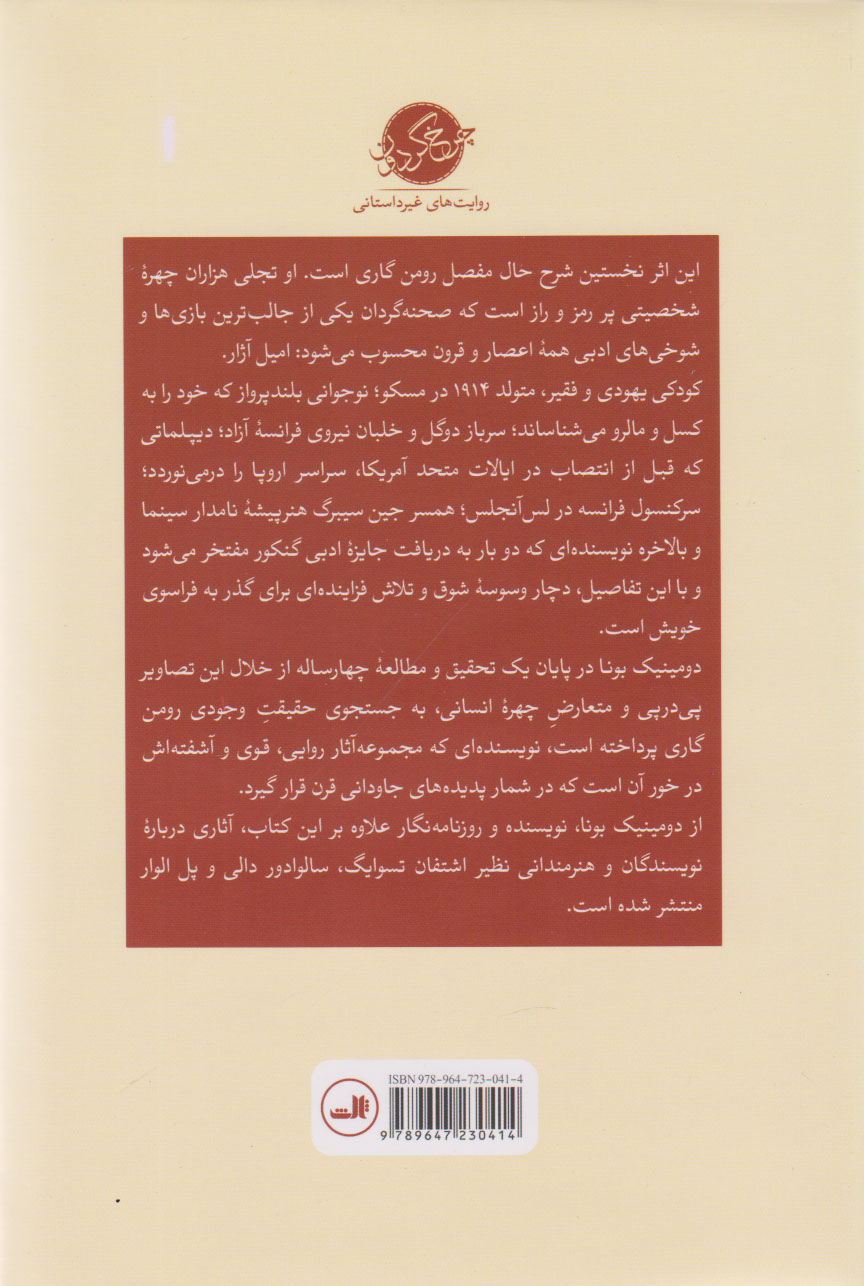 چرخ گردون
روایت‌های غیرداستانی
این اثر نخستین شرح حال مفصل رومن گاری است. او تجلی هزاران چهرهٔ
شخصیتی پر رمز و راز است که صحنه‌گردان یکی از جالب‌ترین بازی‌ها و
شوخی‌های ادبی همهٔ اعصار و قرون محسوب می‌شود: امیل آژار.
کودکی یهودی و فقیر، متولد ۱۹۱۴ در مسکو؛ نوجوانی بلندپرواز که خود را به
کسل و مالرو می‌شناساند؛ سرباز دوگل و خلبان نیروی فرانسهٔ آزاد؛ دیپلماتی
که قبل از انتصاب در ایالات متحد آمریکا، سراسر اروپا را درمی‌نوردد؛
سرکنسول فرانسه در لس‌آنجلس؛ همسر جین سیبرگ هنرپیشهٔ نامدار سینما
و بالاخره نویسنده‌ای که دو بار به دریافت جایزهٔ ادبی گنکور مفتخر می‌شود
و با این تفاصیل، دچار وسوسهٔ شوق و تلاش فزاینده‌ای برای گذر به فراسوی
خویش است.
دومینیک بونا در پایان یک تحقیق و مطالعهٔ چهارساله از خلال این تصاویر
پی‌درپی و متعارضِ چهرهٔ انسانی، به جستجوی حقیقتِ وجودی رومن
گاری پرداخته است، نویسنده‌ای که مجموعه‌آثار روایی، قوی و آشفته‌اش
در خور آن است که در شمار پدیده‌های جاودانی قرن قرار گیرد.
از دومینیک بونا، نویسنده و روزنامه‌نگار علاوه بر این کتاب، آثاری دربارهٔ
نویسندگان و هنرمندانی نظیر اشتفان تسوایگ، سالوادور دالی و پل الوار
منتشر شده است.
ISBN 978-964-723-041-4
ثالث
9 789647 230414